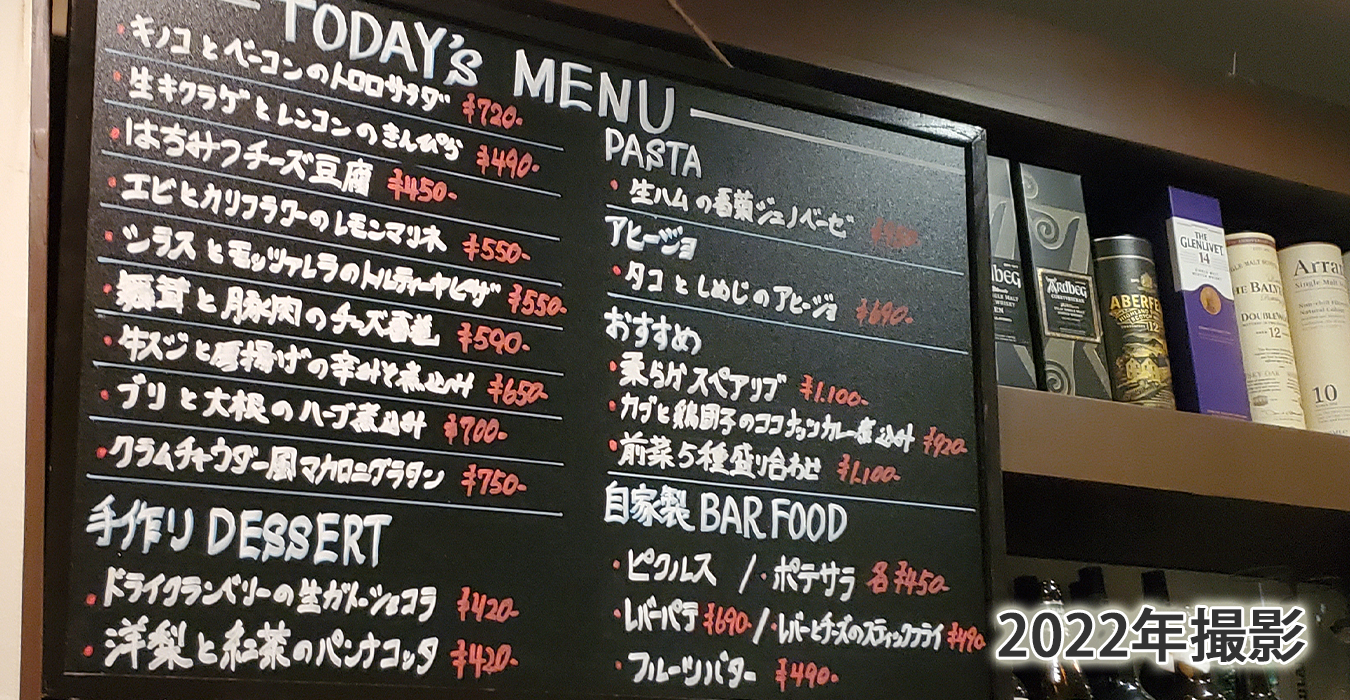 TODAY's MENU
・キノコとベーコンのトロロサラダ ¥720-
・生キクラゲとレンコンのきんぴら ¥490-
・はちみつチーズ豆腐 ¥450-
・エビとカリフラワーのレモンマリネ ¥550-
・シラスとモッツァレラのトルティーヤピザ ¥550-
・瓢茸と豚肉のチーズ春巻 ¥590-
・牛スジと厚揚げの辛みそ煮込み ¥650-
・ブリと大根のハーブ煮込み ¥700-
・クラムチャウダー風マカロニグラタン ¥750-
手作り DESSERT
・ドライクランベリーの生ガトーショコラ ¥420-
・洋梨と紅茶のパンナコッタ ¥420-
PASTA
・生ハムの春菊ジェノベーゼ
アヒージョ
・タコとしめじのアヒージョ ¥690-
おすすめ
・柔らかスペアリブ ¥1,100-
・カブと鶏団子のココナッツカレー煮込み ¥920-
・前菜5種盛り合わせ ¥1,100-
自家製 BAR FOOD
・ピクルス /・ポテサラ 各¥450-
・レバーパテ ¥690- /・レバーとチーズのスティックフライ ¥490-
・フルーツバター ¥490-
Ardbeg
ABERFE
12
THE
GLENLIVET
14
DOUBLEWO
12
Arra
Single Mal
10
2022年撮影